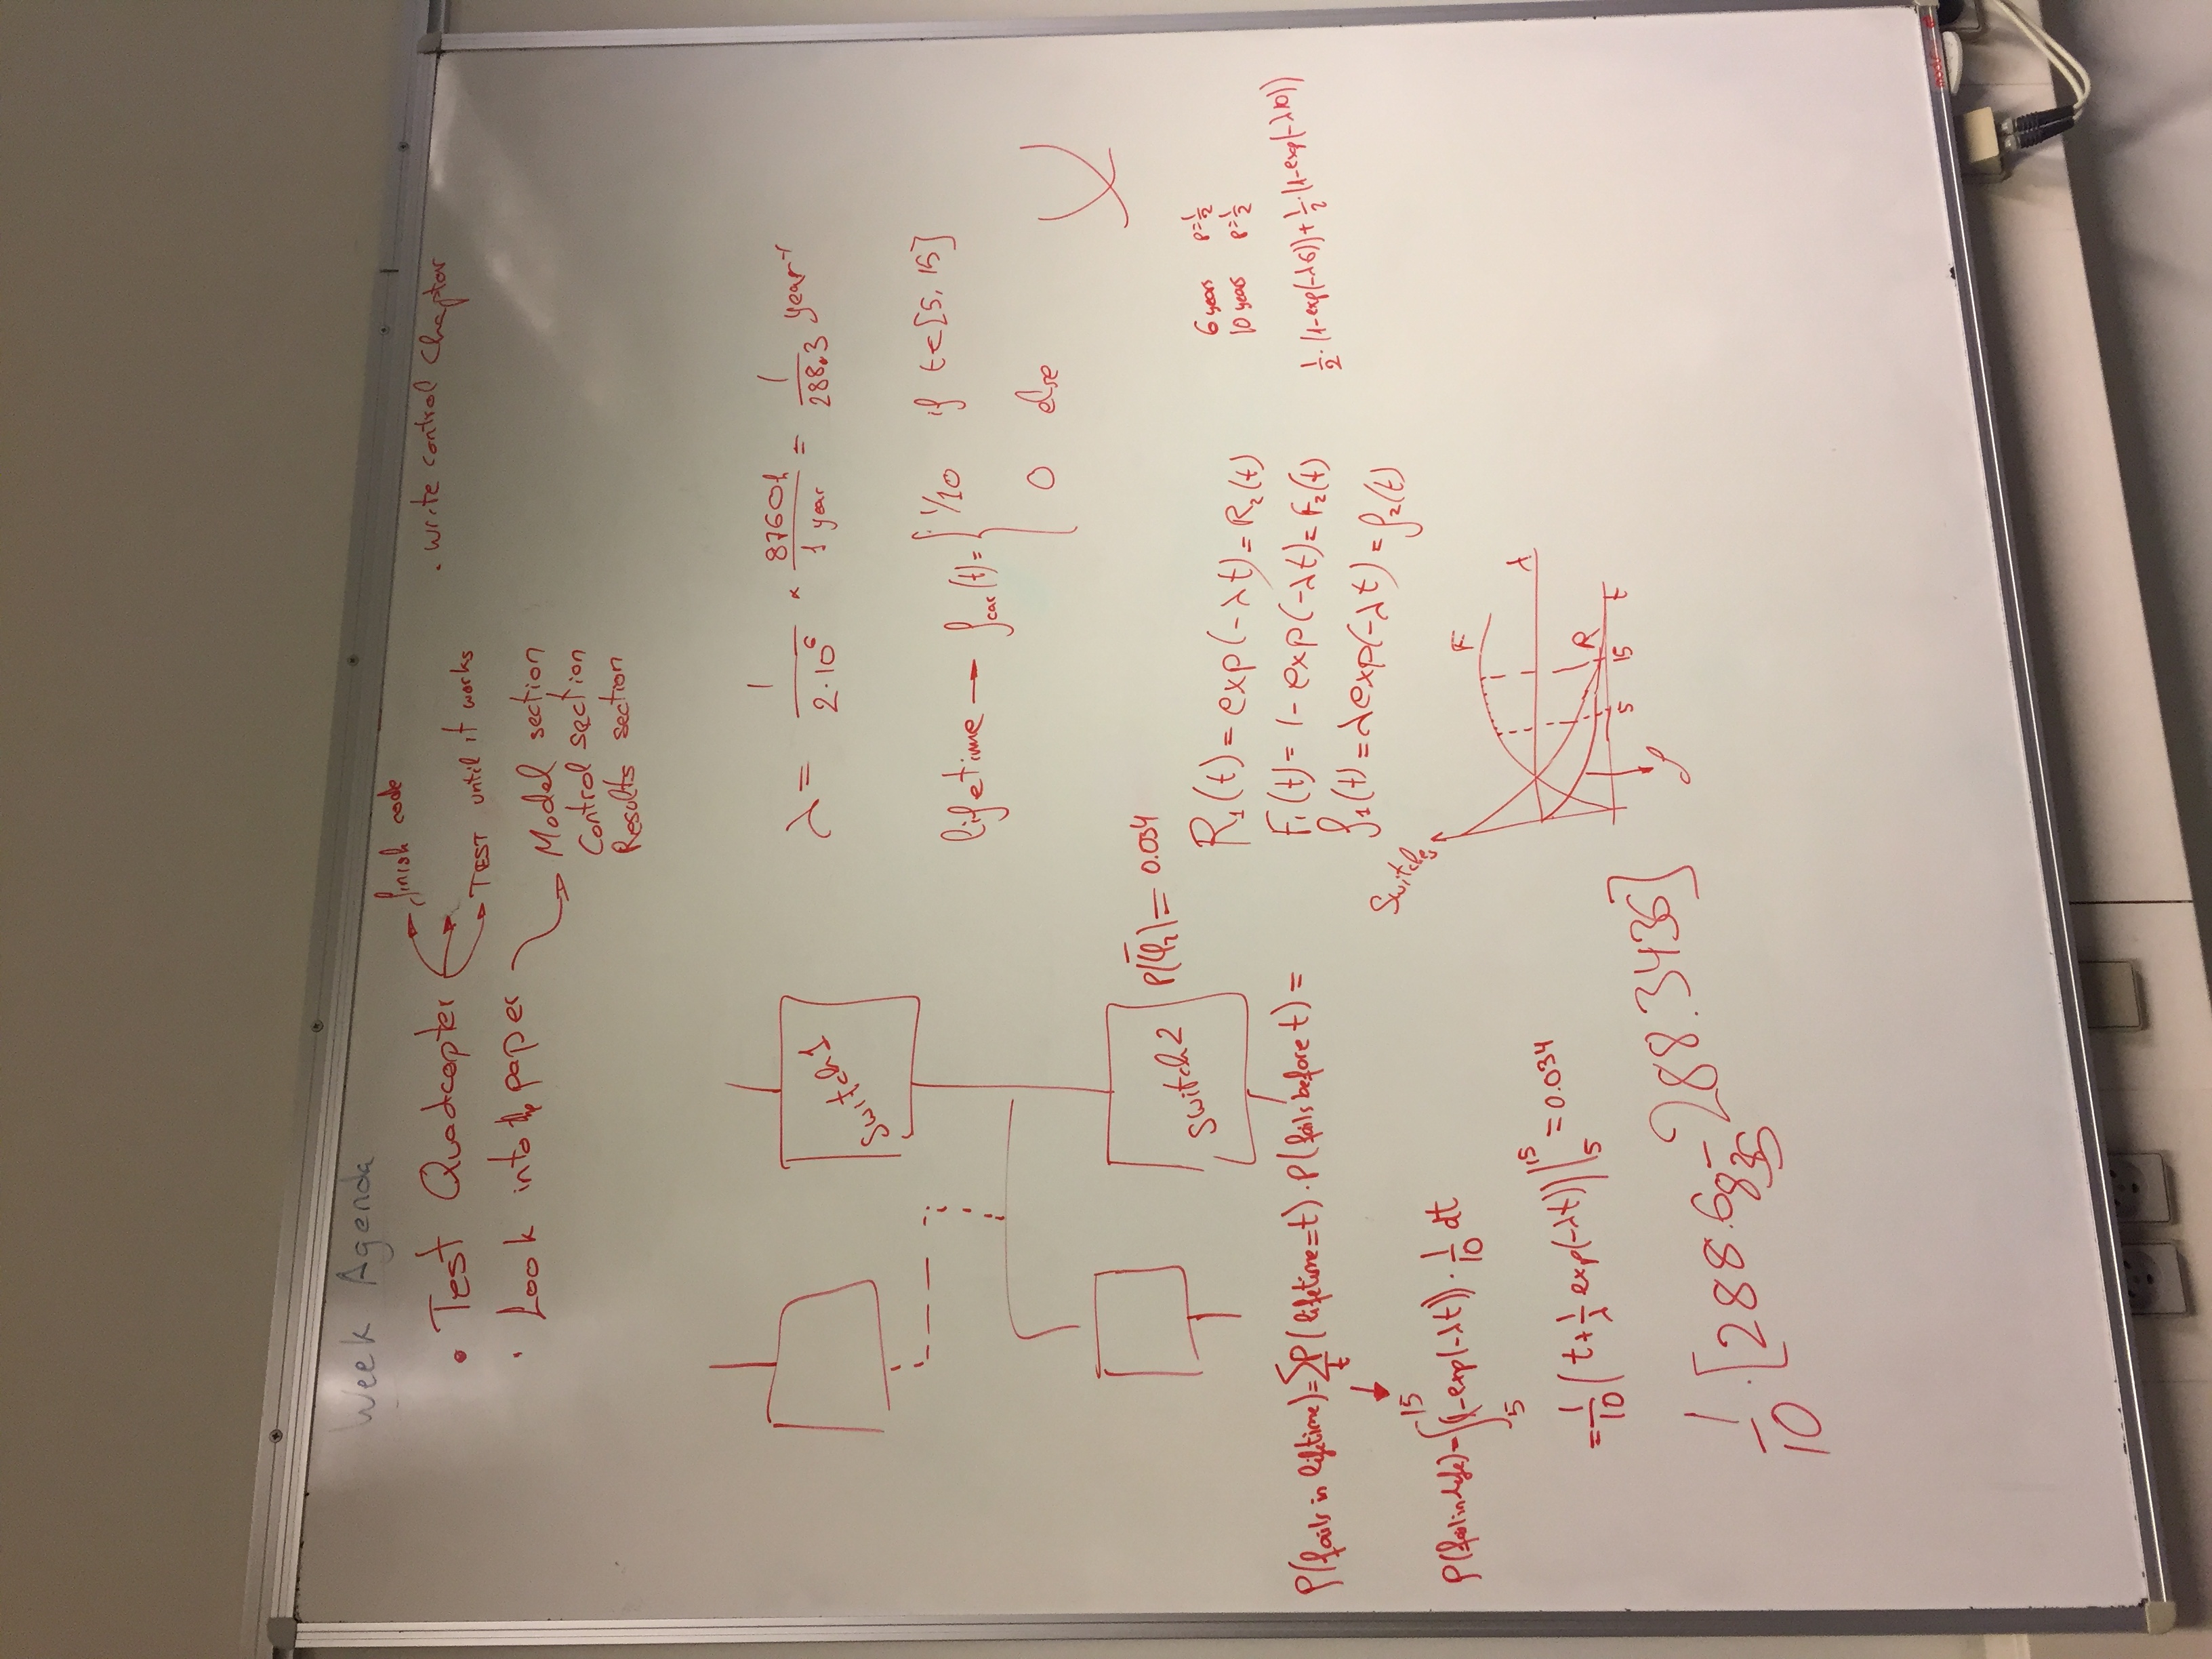 Week Agenda
• Test Quadcopter
finish code
TEST until it works
• Look into the paper
Model section
Control section
Results section
. write control Chapter
Switch1
Switch2
λ = 1/(2·10⁶) × 8760h/1 year = 1/288.3 year⁻¹
lifetime → f_car(t) = { 1/10 if t∈[5, 15]
0 else
P(φ̄₂) = 0.034
R₁(t) = exp(-λt) = R₂(t)
F₁(t) = 1 - exp(-λt) = F₂(t)
f₁(t) = λexp(-λt) = f₂(t)
6 years P=1/2
10 years P=1/2
1/2·(1-exp(-λ6)) + 1/2·(1-exp(-λ10))
P(fails in lifetime) = ∑_t P(lifetime=t)·P(fails before t) =
= ∫₅¹⁵ (1-exp(-λt))·1/10 dt
= 1/10 (t + 1/λ exp(-λt)) |₅¹⁵ = 0.034
Switches
F
R
λ
f
5
15
t
1/10·[288.6835 - 288.3436]